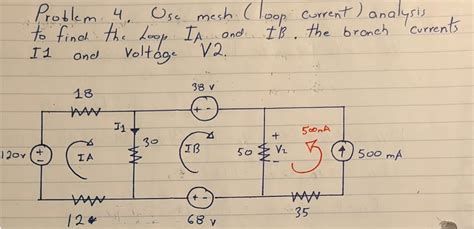 Problem 4. Use mesh (loop current) analysis
to find the Loop IA and IB. the branch currents
I1 and Voltage V2.
18
38 v
+ -
I1
500mA
120v
+
-
IA
30
IB
50
+
V2
-
500 mA
12
+ -
68 v
35